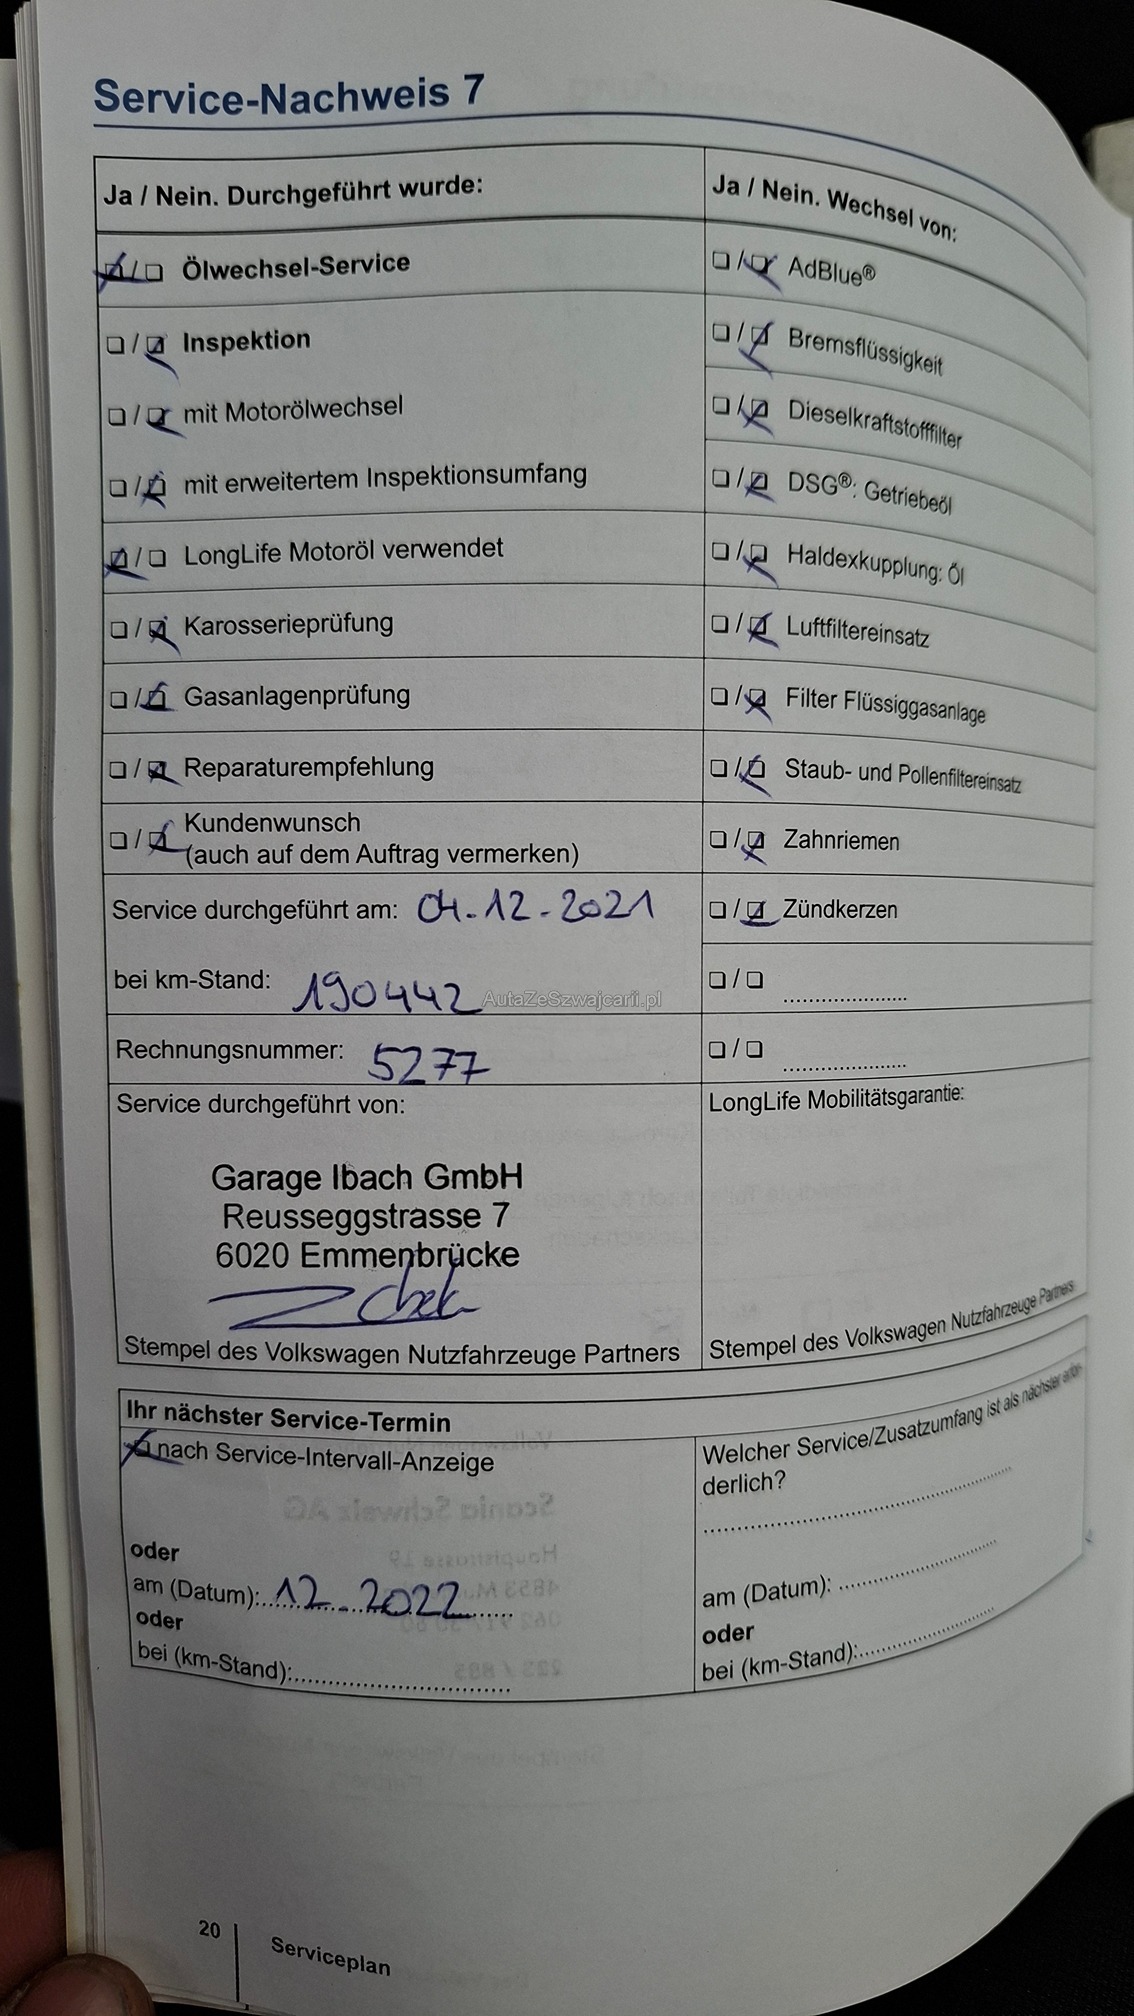 Service-Nachweis 7
Ja / Nein. Durchgeführt wurde:
☒ / ☐ Ölwechsel-Service
☐ / ☒ Inspektion
☐ / ☒ mit Motorölwechsel
☐ / ☒ mit erweitertem Inspektionsumfang
☒ / ☐ LongLife Motoröl verwendet
☐ / ☒ Karosserieprüfung
☐ / ☒ Gasanlagenprüfung
☐ / ☒ Reparaturempfehlung
☐ / ☒ Kundenwunsch
(auch auf dem Auftrag vermerken)
Service durchgeführt am: 04.12.2021
bei km-Stand: 190442
AutaZeSzwajcarii.pl
Rechnungsnummer: 5277
Service durchgeführt von:
Garage Ibach GmbH
Reusseggstrasse 7
6020 Emmenbrücke
Stempel des Volkswagen Nutzfahrzeuge Partners
Ja / Nein. Wechsel von:
☐ / ☒ AdBlue®
☐ / ☒ Bremsflüssigkeit
☐ / ☒ Dieselkraftstofffilter
☐ / ☒ DSG®: Getriebeöl
☐ / ☒ Haldexkupplung: Öl
☐ / ☒ Luftfiltereinsatz
☐ / ☒ Filter Flüssiggasanlage
☐ / ☒ Staub- und Pollenfiltereinsatz
☐ / ☒ Zahnriemen
☐ / ☒ Zündkerzen
☐ / ☐ ......................
☐ / ☐ ......................
LongLife Mobilitätsgarantie:
Stempel des Volkswagen Nutzfahrzeuge Partners
Ihr nächster Service-Termin
☒ nach Service-Intervall-Anzeige
oder
am (Datum): 12.2022
oder
bei (km-Stand):
Welcher Service/Zusatzumfang ist als nächster erfor-
derlich?
am (Datum):
oder
bei (km-Stand):
20
Serviceplan